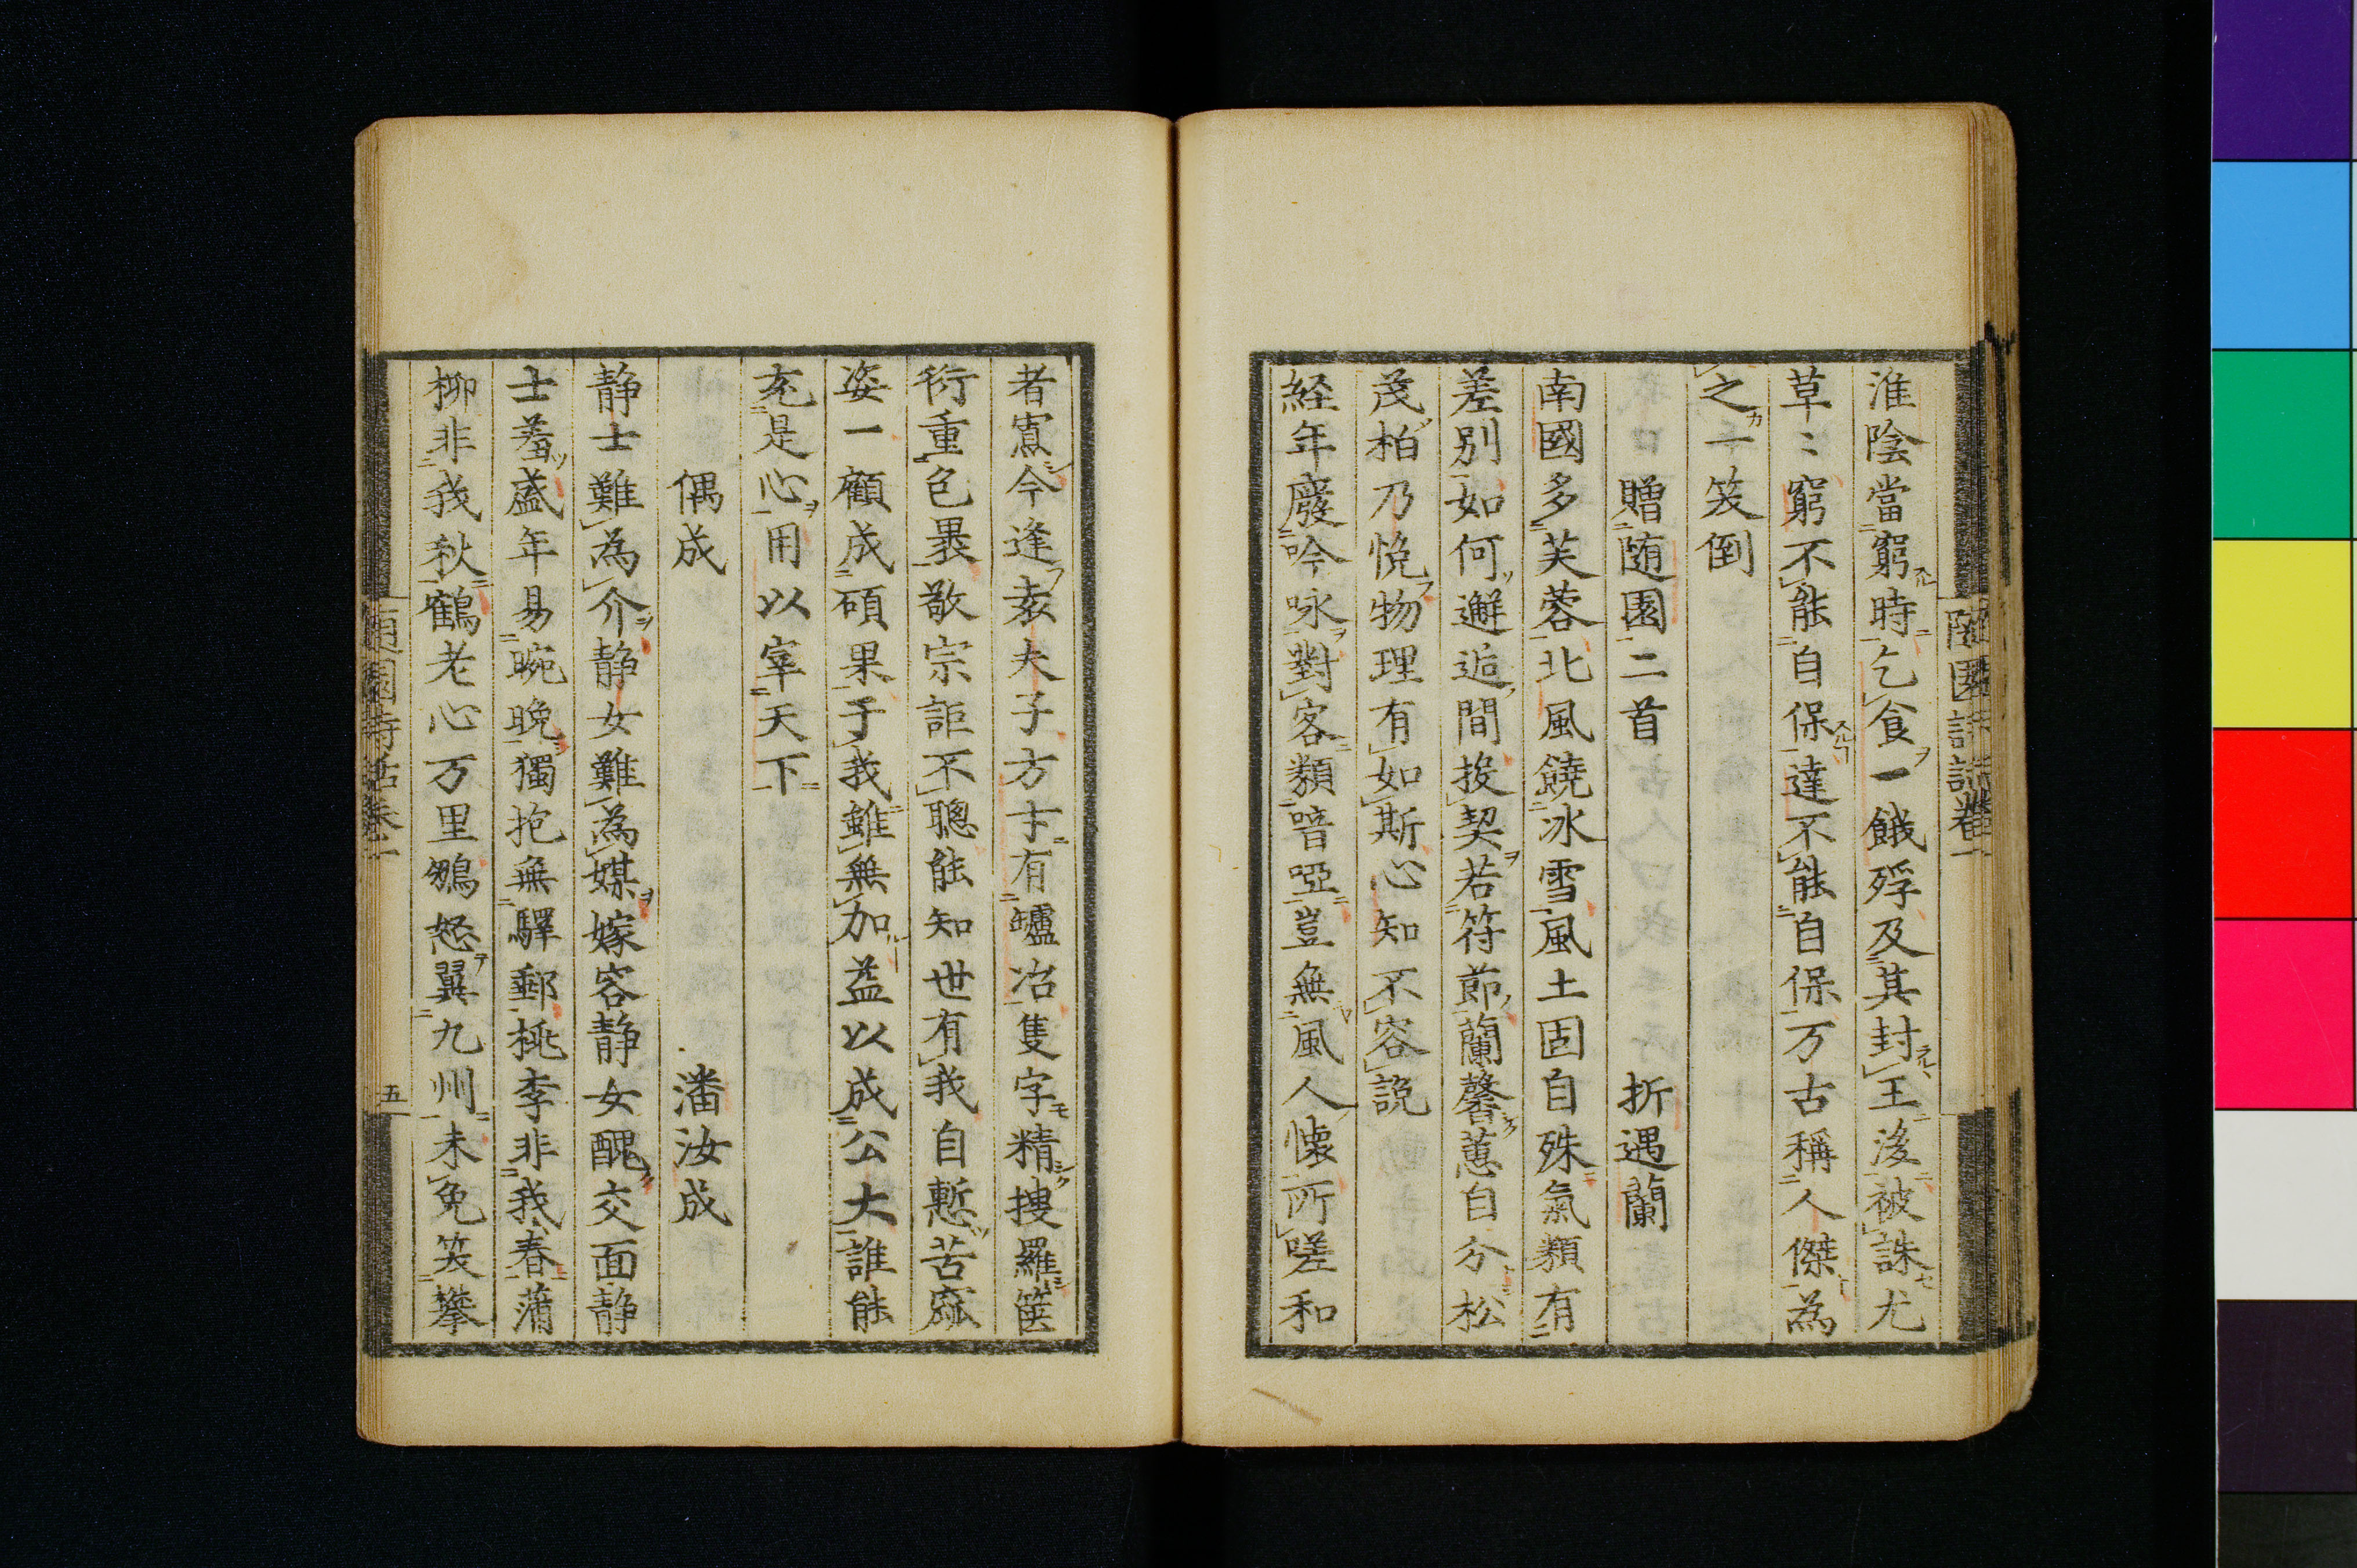 淮陰當窮時乞食一餓殍及其封王後被誅尤
草〻窮不能自保達不能自保万古稱人傑為
之一笑倒
贈随園二首 折遇蘭
南國多芙蓉北風饒冰雪風土固自殊氣類有
差別如何邂逅間投契若符節蘭馨蕙自分松
茂柏乃悅物理有如斯心知不容說
経年廢吟咏對客類喑啞豈無風人懐所嗟和
者寡今逢袁夫子方寸有罏冶隻字精搜羅篋
衍重包裹敬宗詎不聰能知世有我自慙苦窳
姿一顧成碩果于我雖無加益以成公大誰能
充是心用以宰天下
偶成 潘汝成
静士難為介静女難為媒嫁容静女醜交面静
士羞盛年易晼晚獨抱無驛郵桃李非我春蒲
柳非我秋鶴老心万里鶵怒翼九州未免笑攀
五